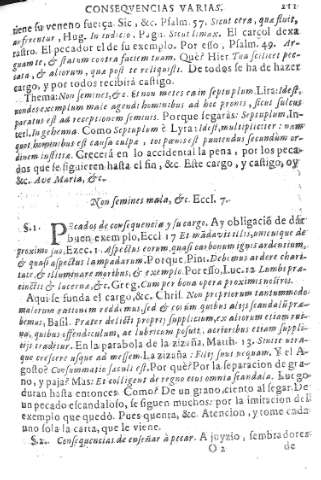 CONSEQUENCIAS VARIAS. 211
tiene su veneno fuerça. Sic, &c. Psalm. 57. Sicut cera, quæ fluit,
auferentur, Hug. In iudicio. Pagn. Sicut limax. El carçol dexa
rastro. El pecador el de su exemplo. Por esso, Psalm. 49. Ar-
guam te, & statuam contra faciem tuam. Què? Hier Tua scilicet pec-
cata, & aliorum, quæ post te reliquisti. De todos se ha de hazer
cargo, y por todos recibirà castigo.
Thema: Non semines, &c. Et non metes eam in septuplum. Lira: Idest,
exemplum male agendi hominibus ad hoc pronis, sicut sulcus
paratus est ad receptionem seminis. Porque segaràs: Septuplum, In-
terl. In gehenna. Como Septuplum è Lyra: Idest, multipliciter: nam
quot hominibus est causa culpa, tot pœnis est puniendus secundum or-
dinem iustitiæ. Crecerà en lo accidental la pena, por los peca-
dos que se siguieren hasta el fin, &c. Este cargo, y castigo, oy
&c. Ave Maria, &c.
Non semines mala, &c. Eccl. 7.
§.1. Pecados de consequencia y su cargo. Ay obligaciō de dar
buen exemplo, Eccl. 17 Et mādavit illis, unicuique de
proximo suo. Ezec. 1. Aspectus eorum, quasi carbonum ignis ardentium,
& quasi aspectus lampadarum. Porque, Pint. Debemus ardere charita-
te & illuminare moribus, & exemplo. Por esso, Luc. 12 Lumbi præ-
cincti & lucerna, &c. Greg. Cum per bona opera proximis nostros.
Aqui se funda el cargo, &c. Chris. Non propriorum tantummodo
malorum rationem reddemus, sed & eorum quibus alijs scandalū præ-
bemus, Basil. Præter delicti proprij supplicium, ex altorum etiam rui-
na, quibus offendiculum, ac lubrico posuit, acrioribus etiam supplic-
ijs traditur. En la parabola de la zizaña. Matth. 13. Sinite utra-
que crescere usque ad messem. La zizaña: Filij sunt nequam. Y el A-
gosto? Consummatio sæculi est. Por què? Por la separacion de gra-
no, y paja? Mas: Et colligent de regno eius omnia scandala. Luego
duran hasta entonces. Como? De un grano, ciento al segar. De
un pecado escandaloso, se siguen muchos: por la imitacion del
exemplo que quedò. Pues quenta, &c. Atencion, y tome cada
uno sola la carta, que le viene.
§.2. Consequencias de enseñar à pecar. A juyzio, sembradores
O 2 de